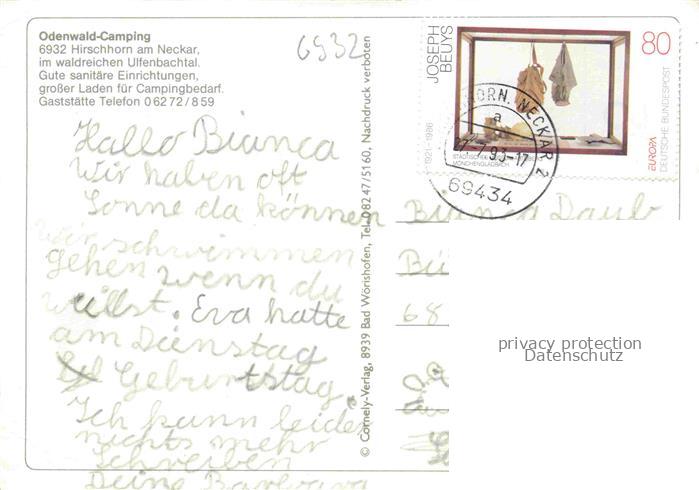 Odenwald-Camping
6932 Hirschhorn am Neckar,
im waldreichen Ulfenbachtal.
Gute sanitäre Einrichtungen,
großer Laden für Campingbedarf.
Gaststätte Telefon 0 62 72 / 8 59
6932
Hallo Bianca
Wir haben oft
Sonne da können
Wir schwimmen
gehen wenn du
willst. Eva hatte
am Dienstag
Geburtstag.
Ich kann leider
nichts mehr
schreiben
Deine Barbara
© Cornely-Verlag, 8939 Bad Wörishofen, Tel. 0 82 47/51 60, Nachdruck verboten
JOSEPH
BEUYS
1921-1986
80
STÄDTISCHES
MÖNCHENGLADBACH
EUROPA
DEUTSCHE BUNDESPOST
HORN, NECKAR 2
a
7.93-17
69434
Daub
Bü
68
privacy protection
Datenschutz